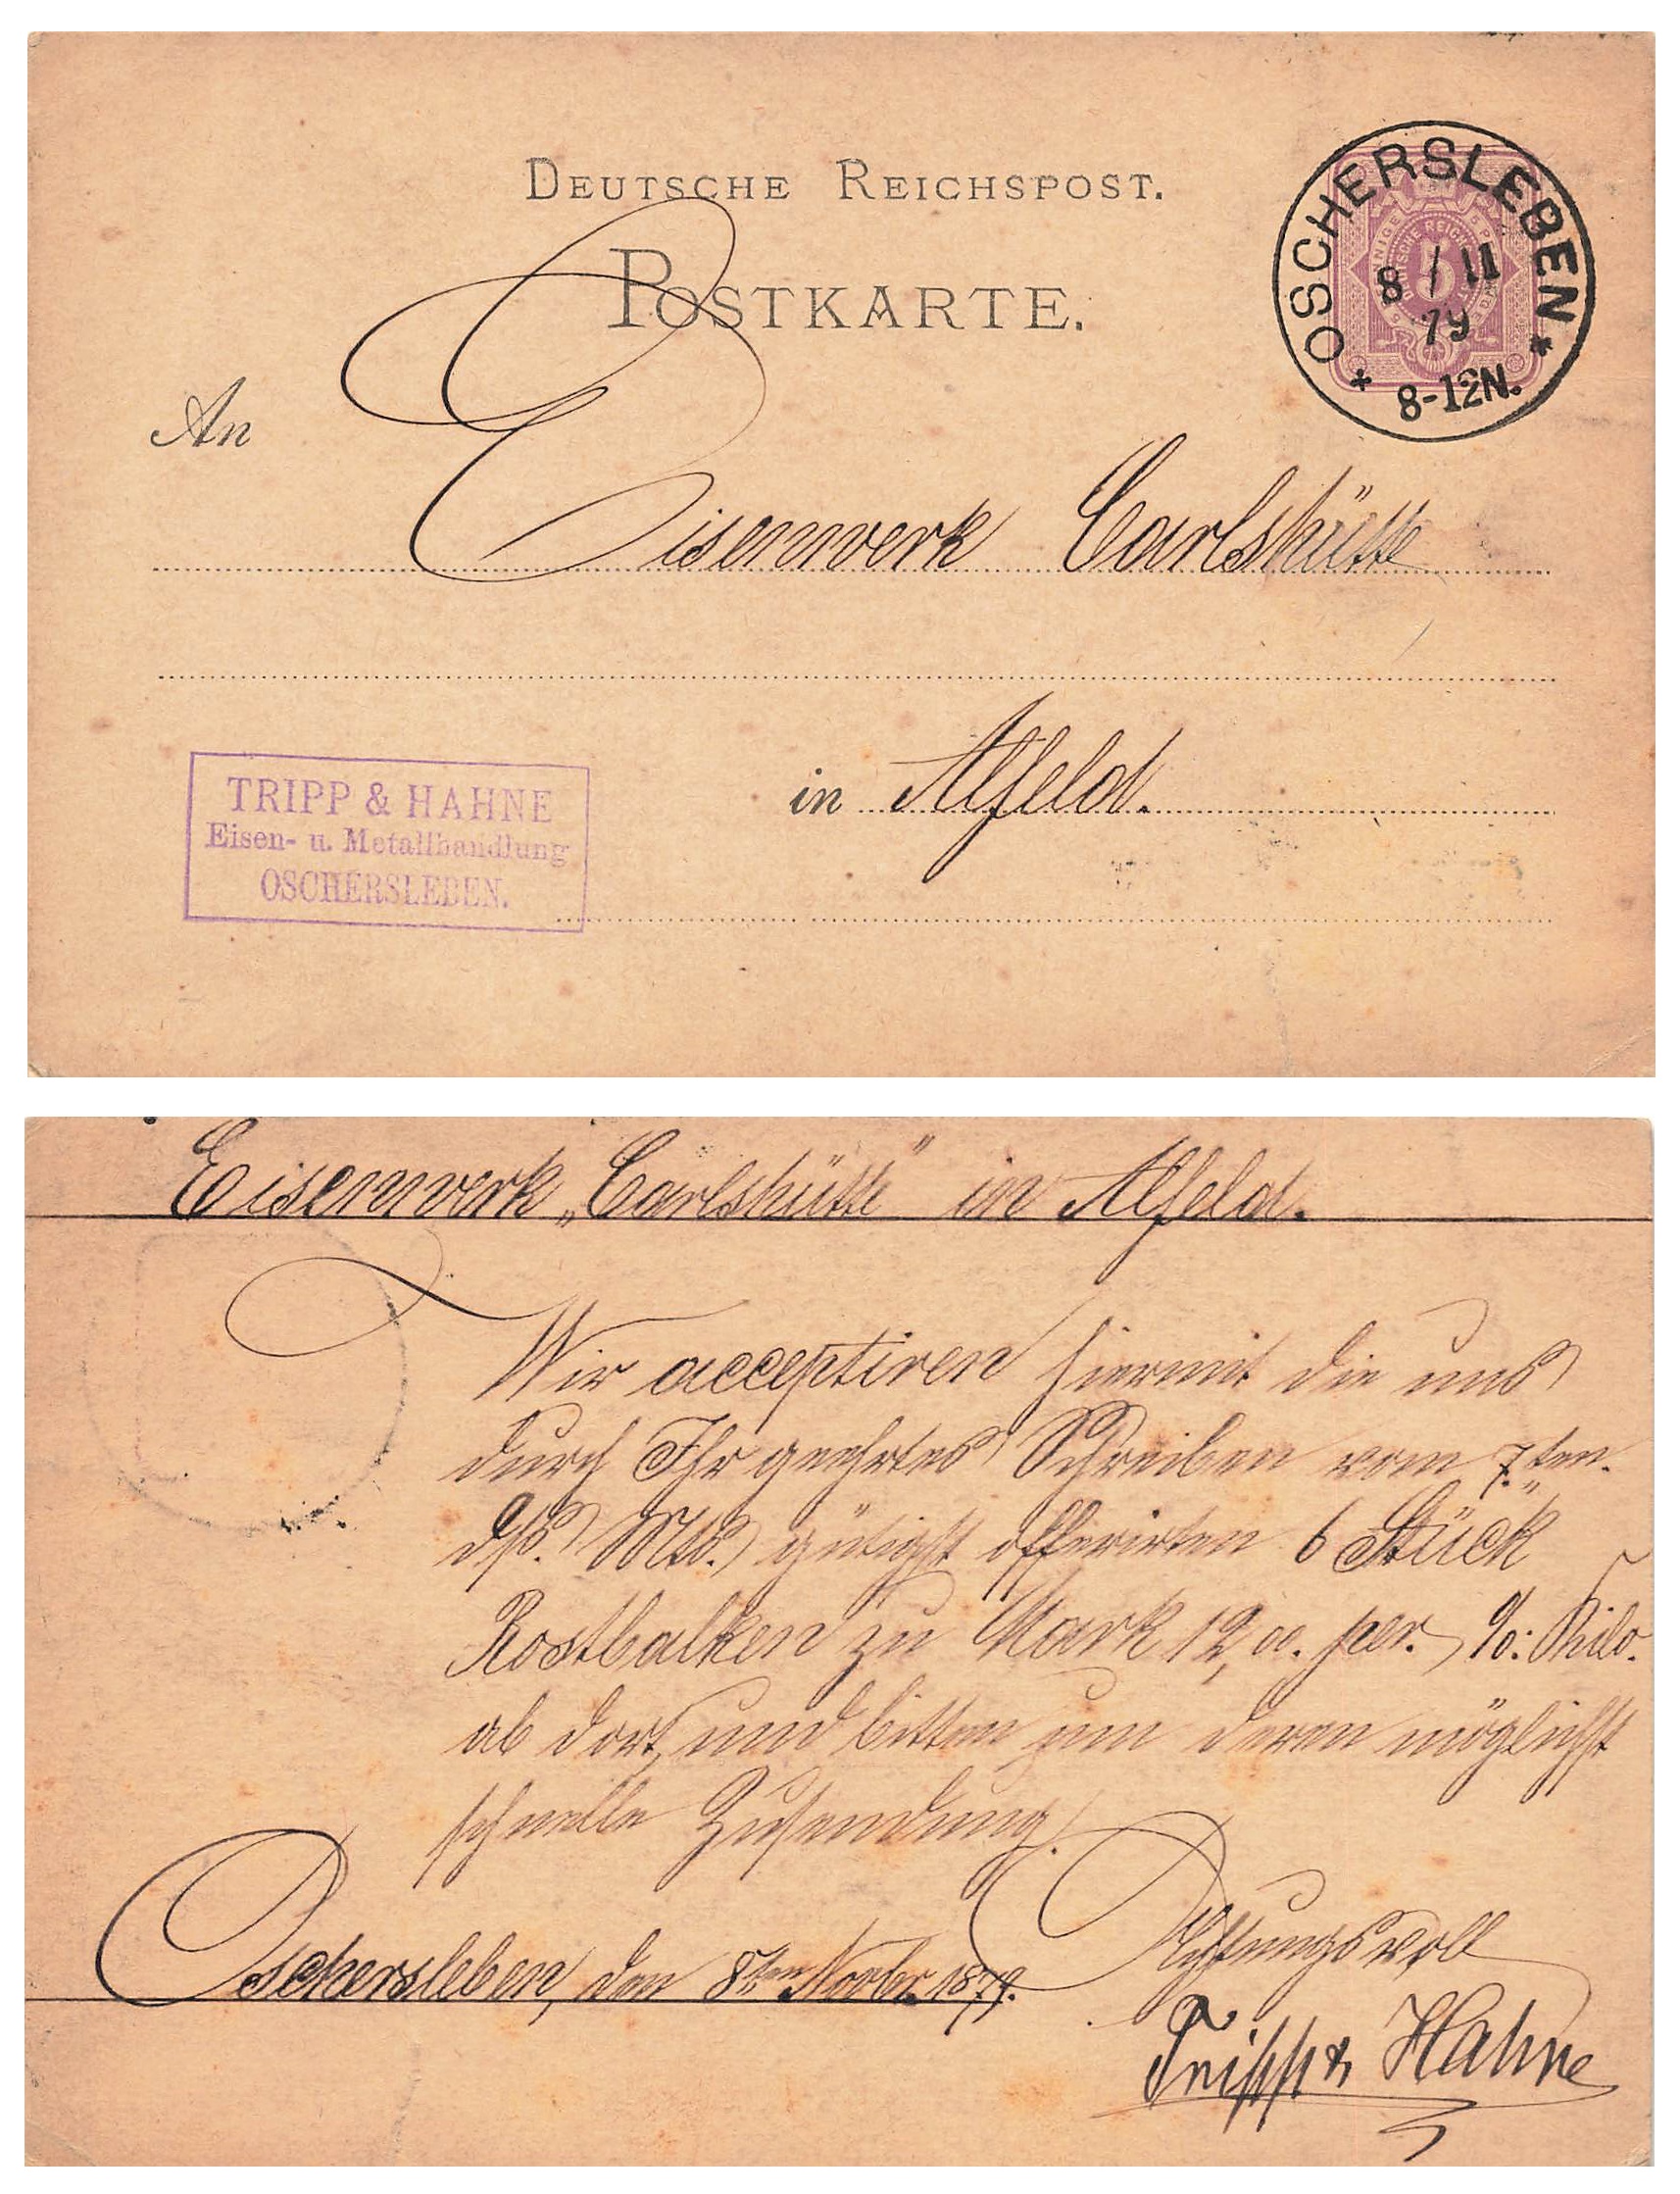 DEUTSCHE REICHSPOST.
POSTKARTE.
OSCHERSLEBEN
8 / 11
79
8-12N.
An
Eisenwerk Carlshütte
in Alfeld.
TRIPP & HAHNE
Eisen- u. Metallhandlung
OSCHERSLEBEN.
Eisenwerk „Carlshütte" in Alfeld.
Wir acceptiren hiermit die uns
durch Ihr geehrtes Schreiben vom 7ten.
dss. Mts. gütigst offerirten 6 Stück
Rostbalken zu Mark 12,00. per. %: Kilo.
ab dort, und bitten um deren möglichst
schnelle Zusendung.
Achtungsvoll
Oschersleben, den 8ten Novbr. 1879.
Tripp & Hahne